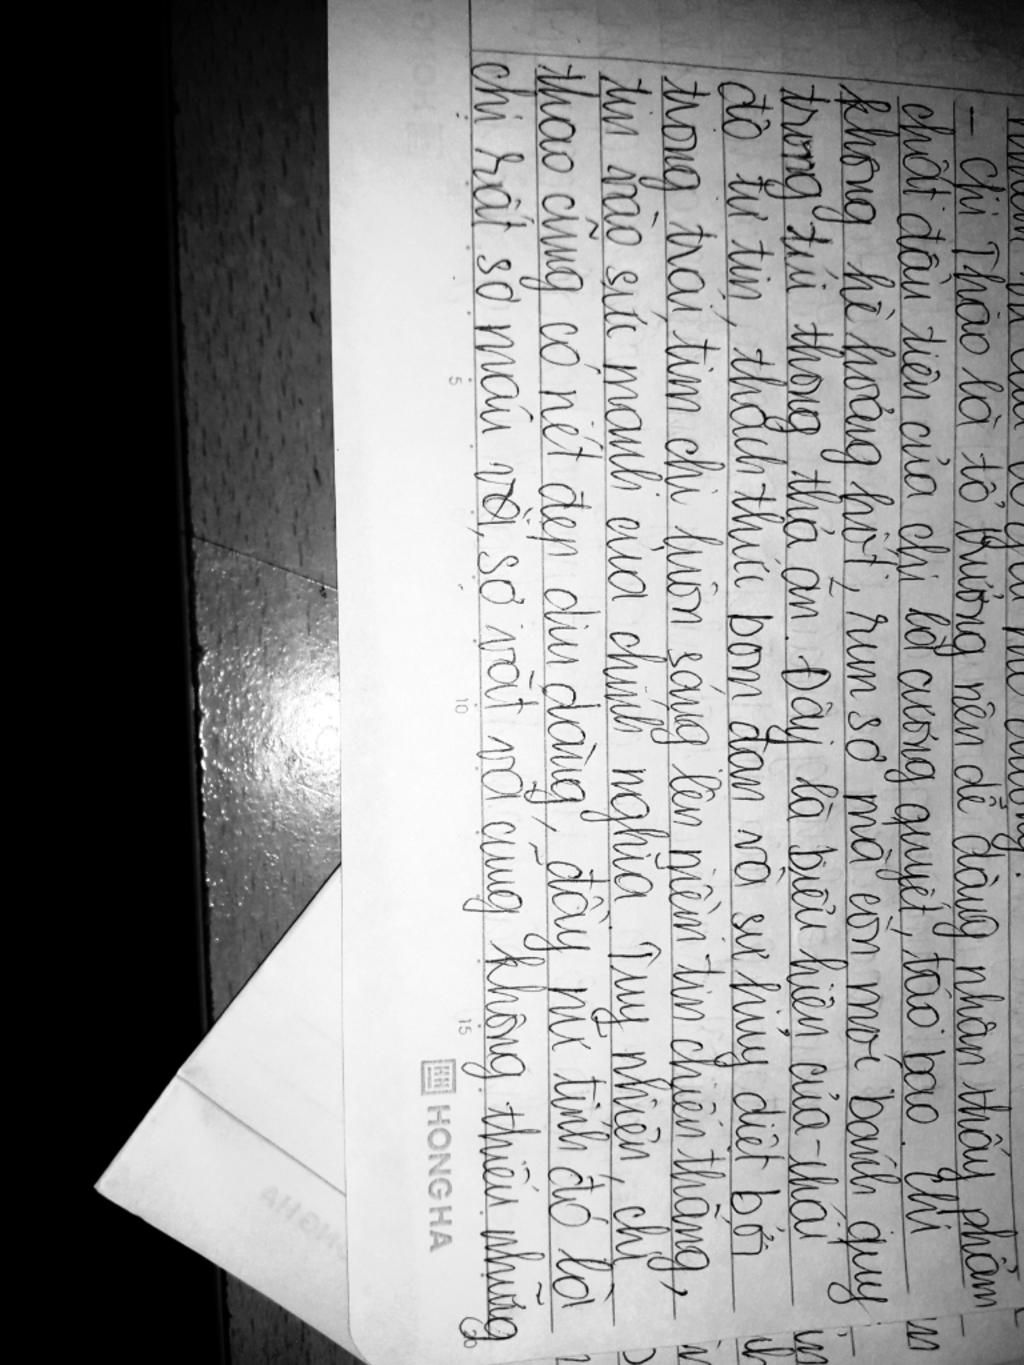 - chị Thao là tổ trưởng nên dễ dàng nhận thấy phẩm
chất đầu tiên của chị là cương quyết, táo bạo. Chị
không hề hoảng hốt, run sợ mà còn moi bánh quy
trong túi thong thả ăn. Đây là biểu hiện của thái
độ tự tin, thách thức bom đạn và sự hủy diệt bởi
trong trái tim chị luôn sáng lên niềm tin chiến thắng,
tin vào sức mạnh của chính nghĩa. Tuy nhiên, chị
thao cũng có nét đẹp dịu dàng, đầy nữ tính đó là
chị rất sợ máu và, sợ vắt và cũng không thiếu những
5
10
15
HONG HA